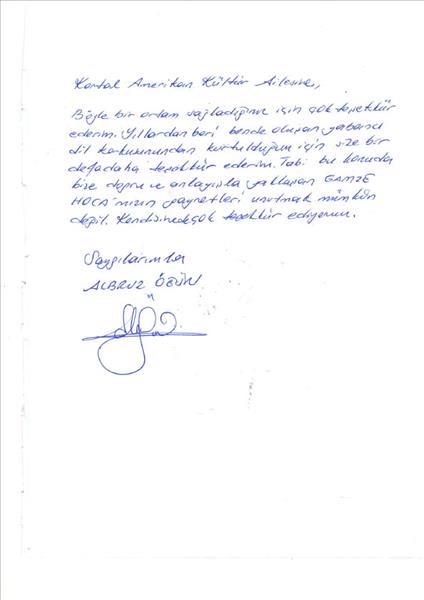 Kartal Amerikan Kültür Ailesine,
Böyle bir ortam sağladığınız için çok teşekkür
ederim. Yıllardan beri bende oluşan yabancı
dil korkusunundan kurtulduğum için size bir
defadaha teşekkür ederim. Tabi bu konuda
bize doğru ve anlayışla yaklaşan GAMZE
HOCA'mızın gayretleri unutmak mümkün
değil. Kendisinedeçok teşekkür ediyorum.
Saygılarımla
ALBRUZ